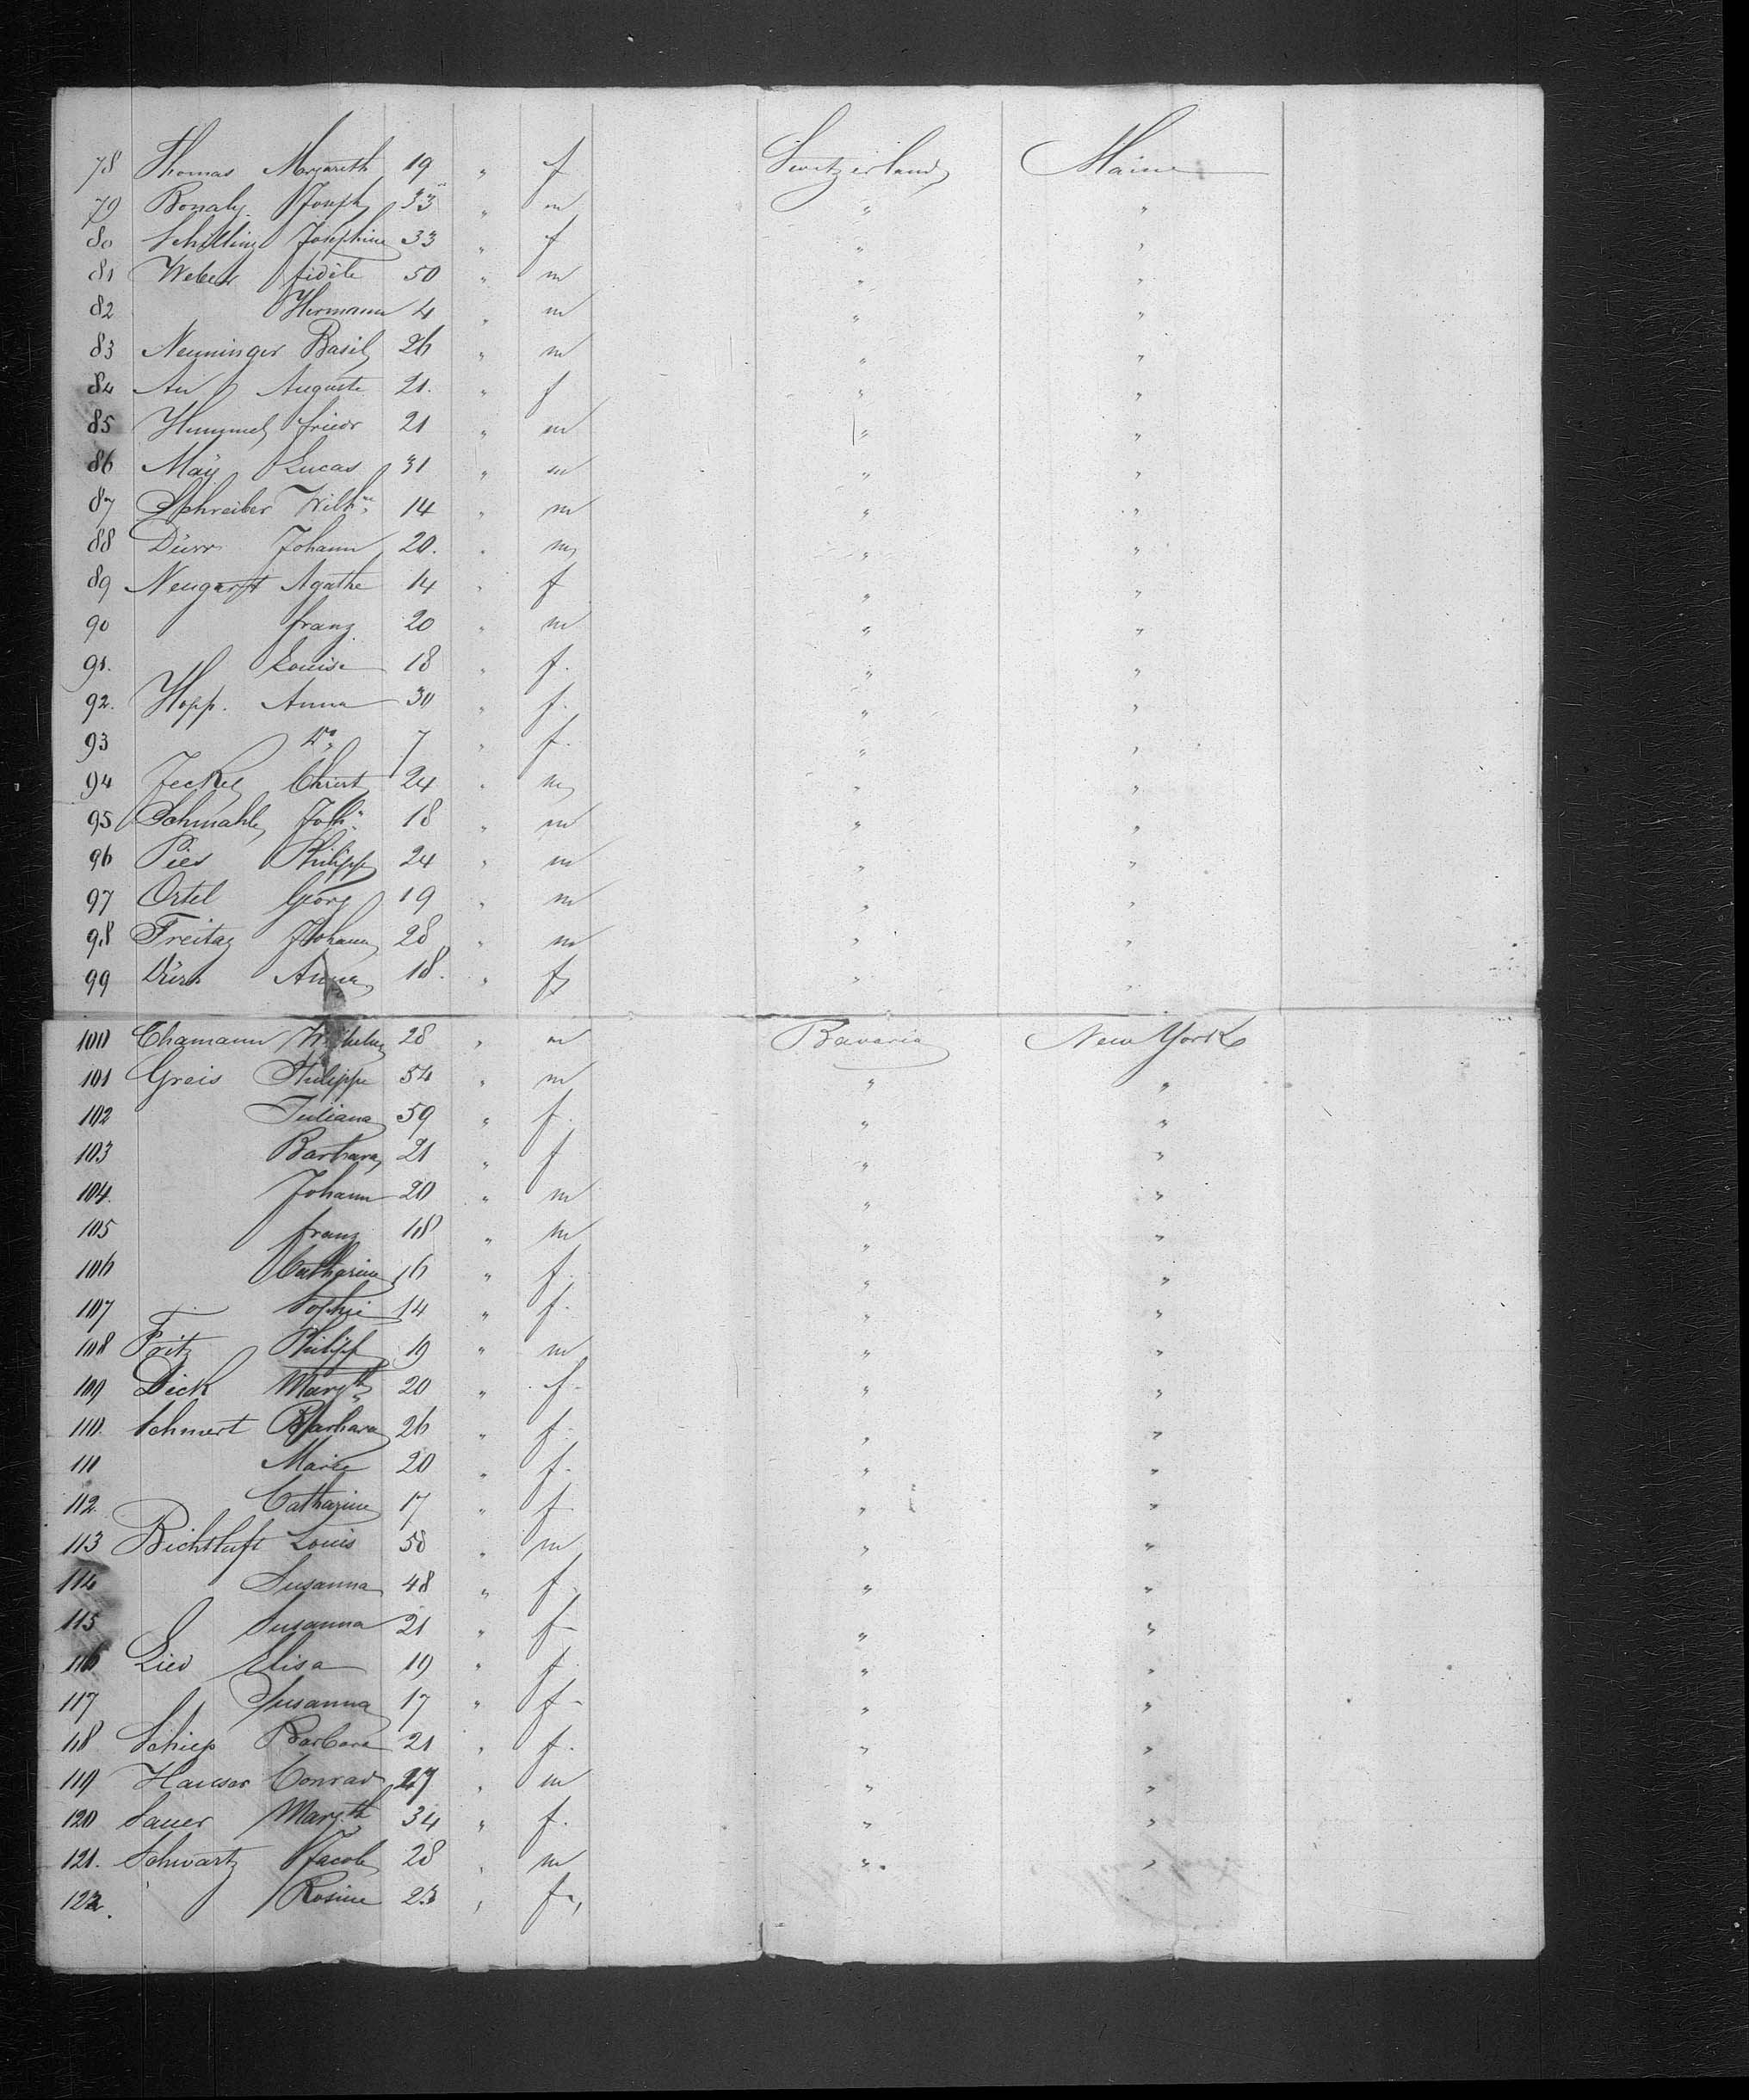 78 Thomas Margareth 19 " f Switzerland Maine
79 Bonaly Joseph 33 " m " "
80 Schilling Josephine 33 " f " "
81 Weber fidèle 50 " m " "
82 Hermann 4 " m " "
83 Neuninger Basil 26 " m " "
84 Au Auguste 21. " f " "
85 Hummel friedr 21 " m " "
86 Maÿ Lucas 31 " m " "
87 Schreiber Wilhm 14 " m " "
88 Dürr Johann 20. " m " "
89 Neugarft Agathe 14 " f " "
90 franz 20 " m " "
91. Louise 18 " f. " "
92. Hopp. Anna 30 " f. " "
93 do 7 " f. " "
94 Jeckel Christ 24 " m " "
95 Schmahl Joh" 18 " m " "
96 Pies Philipp 24 " m " "
97 Ortel Georg 19 " m " "
98 Freitag Johann 28 " m " "
99 Dürr Anna 18. " f " "
100 Chamann Wilhelm 28 " m Bavaria New York
101 Greis Philippe 54 " m " "
102 Juliana 59 " f. " "
103 Barbara 21 " f " "
104. Johann 20 " m " "
105 franz 18 " m " "
106 Catharine 16 " f. " "
107 Sophie 14 " f. " "
108 Fritz Philipp 19 " m " "
109 Dick Margth 20 " f. " "
110. Schmert Barbara 26 " f. " "
111 Marie 20 " f. " "
112. Catharine 17 " f " "
113 Bichtluft Louis 50 " m " "
114 Susanna 48 " f " "
115 Susanna 21 " f " "
116 Lied Elisa 19 " f " "
117 Susanna 17 " f " "
118 Schiep Barbara 21 " f. " "
119 Hauser Conrad 27 " m " "
120 Sauer Margth 34 " f. " "
121. Schwartz Jacob 28 " m " "
122. Rosine 23 " f